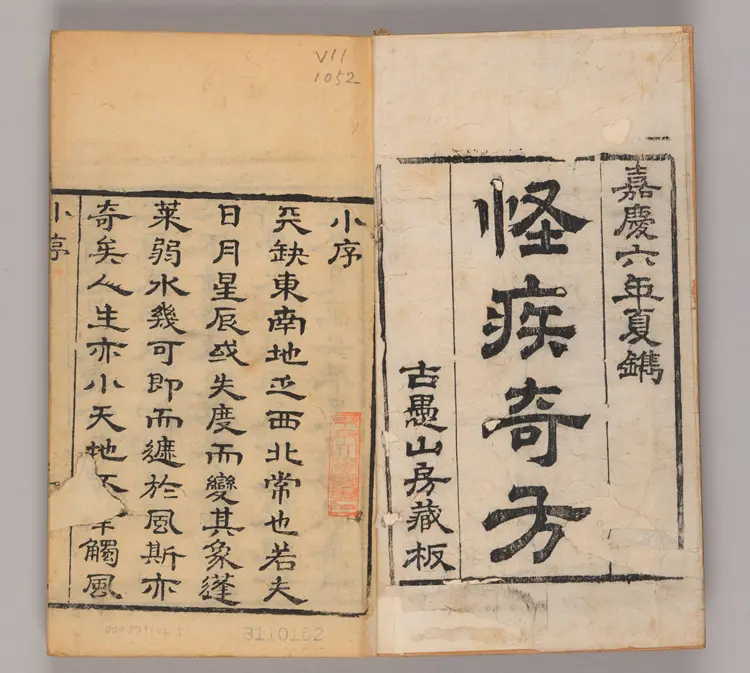 嘉慶六年夏鐫
怪疾奇方
古愚山房藏板
VII
1052
小序
天缺東南地西北常也若夫
日月星辰或失度而變其象蓬
萊弱水幾可即而遽於風斯亦
奇矣人生亦小天地不觸風
小序
3110162